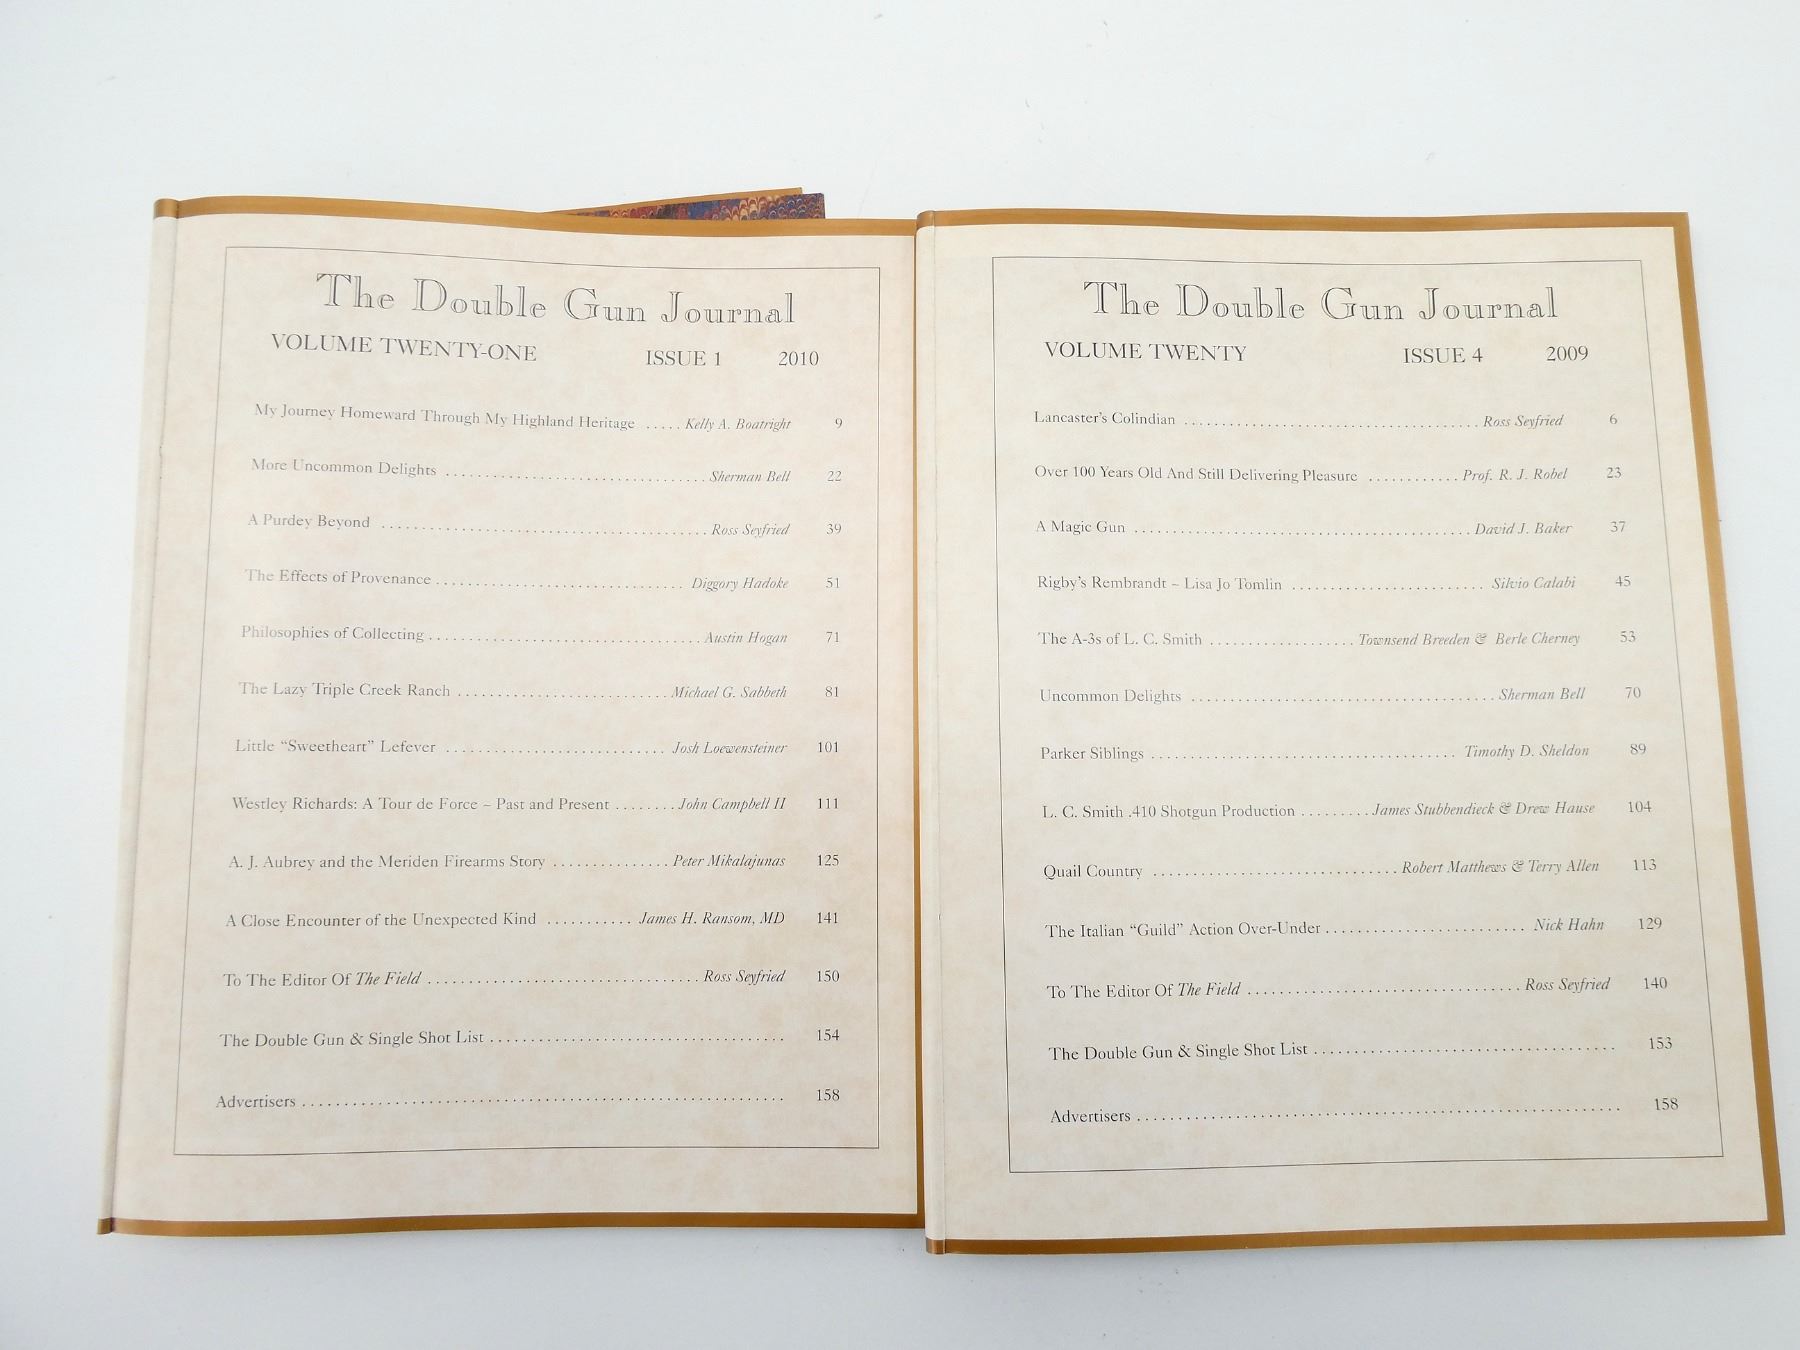 The Double Gun Journal
VOLUME TWENTY-ONE ISSUE 1 2010
My Journey Homeward Through My Highland Heritage ..... Kelly A. Boatright 9
More Uncommon Delights ................................ Sherman Bell 22
A Purdey Beyond ........................................ Ross Seyfried 39
The Effects of Provenance .............................. Diggory Hadoke 51
Philosophies of Collecting ................................. Austin Hogan 71
The Lazy Triple Creek Ranch ......................... Michael G. Sabbeth 81
Little “Sweetheart” Lefever .......................... Josh Loewensteiner 101
Westley Richards: A Tour de Force ~ Past and Present ........ John Campbell II 111
A. J. Aubrey and the Meriden Firearms Story .............. Peter Mikalajunas 125
A Close Encounter of the Unexpected Kind ........... James H. Ransom, MD 141
To The Editor Of The Field ................................. Ross Seyfried 150
The Double Gun & Single Shot List ................................... 154
Advertisers ......................................................... 158
The Double Gun Journal
VOLUME TWENTY ISSUE 4 2009
Lancaster’s Colindian ..................................... Ross Seyfried 6
Over 100 Years Old And Still Delivering Pleasure ............ Prof. R. J. Robel 23
A Magic Gun ......................................... David J. Baker 37
Rigby’s Rembrandt ~ Lisa Jo Tomlin ........................ Silvio Calabi 45
The A-3s of L. C. Smith .................. Townsend Breeden & Berle Cherney 53
Uncommon Delights ..................................... Sherman Bell 70
Parker Siblings ..................................... Timothy D. Sheldon 89
L. C. Smith .410 Shotgun Production ......... James Stubbendieck & Drew Hause 104
Quail Country .............................. Robert Matthews & Terry Allen 113
The Italian “Guild” Action Over-Under ........................ Nick Hahn 129
To The Editor Of The Field ................................. Ross Seyfried 140
The Double Gun & Single Shot List .................................... 153
Advertisers ......................................................... 158